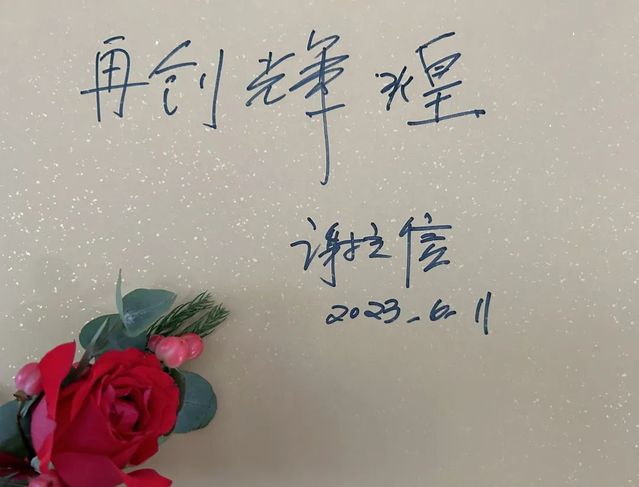 再创辉煌
谢立信
2023.6.11